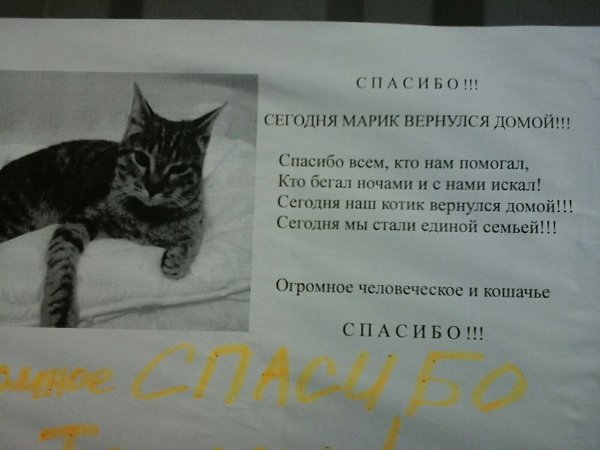 СПАСИБО!!!
СЕГОДНЯ МАРИК ВЕРНУЛСЯ ДОМОЙ!!!
Спасибо всем, кто нам помогал,
Кто бегал ночами и с нами искал!
Сегодня наш котик вернулся домой!!!
Сегодня мы стали единой семьей!!!
Огромное человеческое и кошачье
СПАСИБО!!!
СПАСИБО